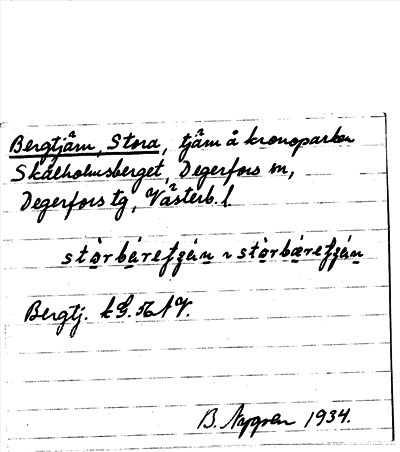 Bergtjärn, Stora, tjärn å kronoparken
Skålholmsberget, Degerfors sn,
Degerfors tg, Västerb. l
stòrbárefzén ~ stòrbærefzén
Bergtj.
B. Nygren 1934.